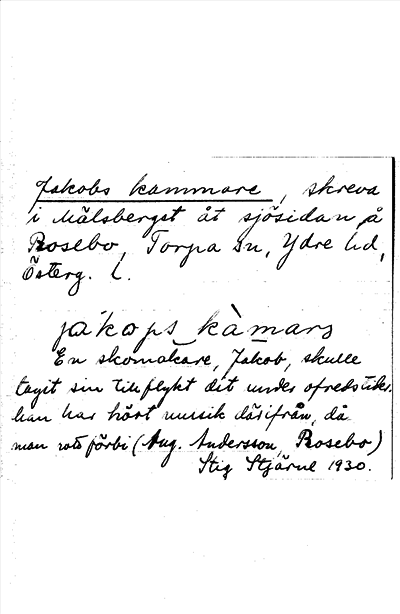 Jakobs kammare, skreva
i Mälsberget åt sjösidan å
Rosebo, Torpa sn, Ydre hd,
Österg. l.
ja´kops_kàmarʒ
En skomakare, Jakob, skulle
tagit sin tillflykt dit under ofredstider.
han har hört mussik därifrån, då
man rott förbi (Aug. Andersson, Rosebo)
Stig Stjärne 1930.